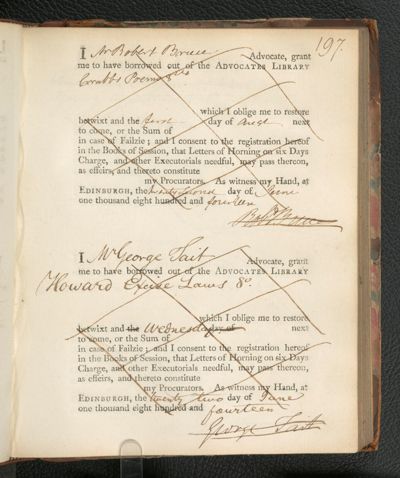 197.
I Mr Robert Bruce Advocate, grant
me to have borrowed out of the ADVOCATES LIBRARY
Crabbs Poems 8vo
which I oblige me to restore
betwixt and the first day of Augt next
to come, or the Sum of
in case of Failzie; and I consent to the registration hereof
in the Books of Session, that Letters of Horning on six Days
Charge, and other Executorials needful, may pass thereon,
as effeirs, and thereto constitute
my Procurators. As witness my Hand, at
EDINBURGH, the twenty second day of June
one thousand eight hundred and fourteen
Robt Bruce
I Mr George Tait Advocate, grant
me to have borrowed out of the ADVOCATES LIBRARY
Howard Excise Laws 8o.
which I oblige me to restore
betwixt and the Wednesday day of next
to come, or the Sum of
in case of Failzie; and I consent to the registration hereof
in the Books of Session, that Letters of Horning on six Days
Charge, and other Executorials needful, may pass thereon,
as effeirs, and thereto constitute
my Procurators. As witness my Hand, at
EDINBURGH, the twenty two day of June
one thousand eight hundred and fourteen
George Tait